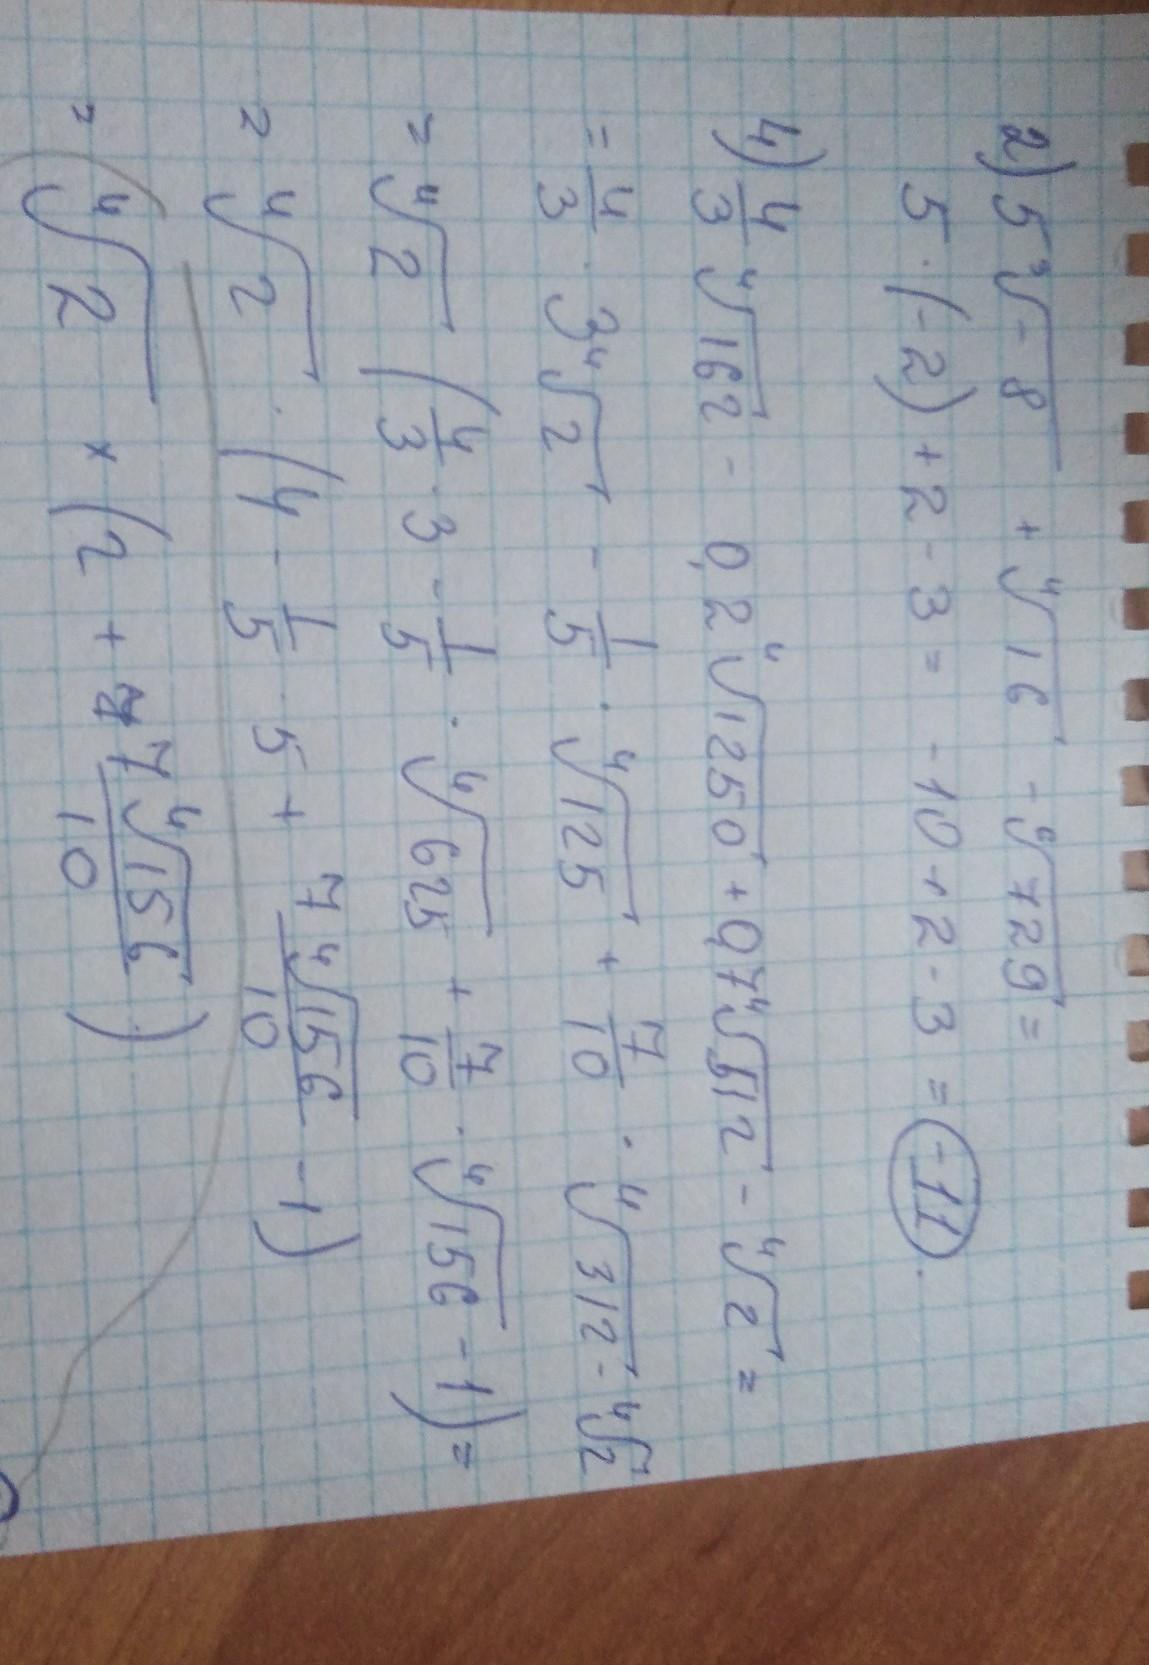 2) 5∛-8 + ∜16 - ⁶√729 =
5·(-2)+2-3 = -10+2-3 = -11.
4) 4/3 ∜162 - 0,2∜1250 + 0,7∜512 - ∜2 =
= 4/3 · 3∜2 - 1/5 · ∜125 + 7/10 · ∜312 - ∜2
= ∜2 (4/3 · 3 - 1/5 · ∜625 + 7/10 · ∜156 - 1) =
= ∜2 · (4 - 1/5 · 5 + 7∜156/10 - 1)
= ∜2 × (2 + 7∜156/10)